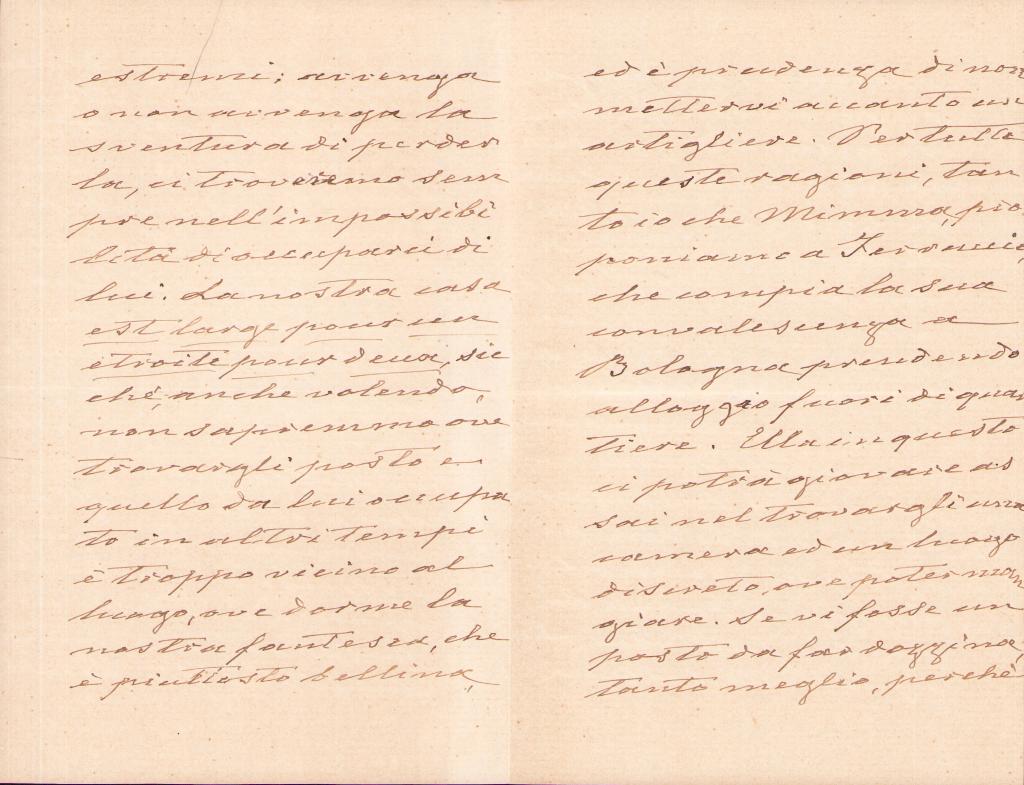 estremi; avvenga
o non avvenga la
sventura di perder
la, ci troveremo sem
pre nell'impossibi
lità di occuparci di
lui. La nostra casa
est large pour un
étroite pour deux, sic
ché, anche volendo,
non sapremmo ove
trovargli posto e
quello da lui occupa
to in altri tempi
è troppo vicino al
luogo, ove dorme la
nostra fantesca, che
è piuttosto bellina,
ed è prudenza di non
mettervi accanto un
artigliere. Per tutte
queste ragioni, tan
to io che Mimma, pro
poniamo a Ferruccio,
che compia la sua
convalescenza a
Bologna prendendo
alloggio fuori di quar
tiere. Ella in questo
ci potrà giovare as
sai nel trovargli una
camera ed un luogo
discreto, ove poter man
giare. Se vi fosse un
posto da far dozzina,
tanto meglio, perchè